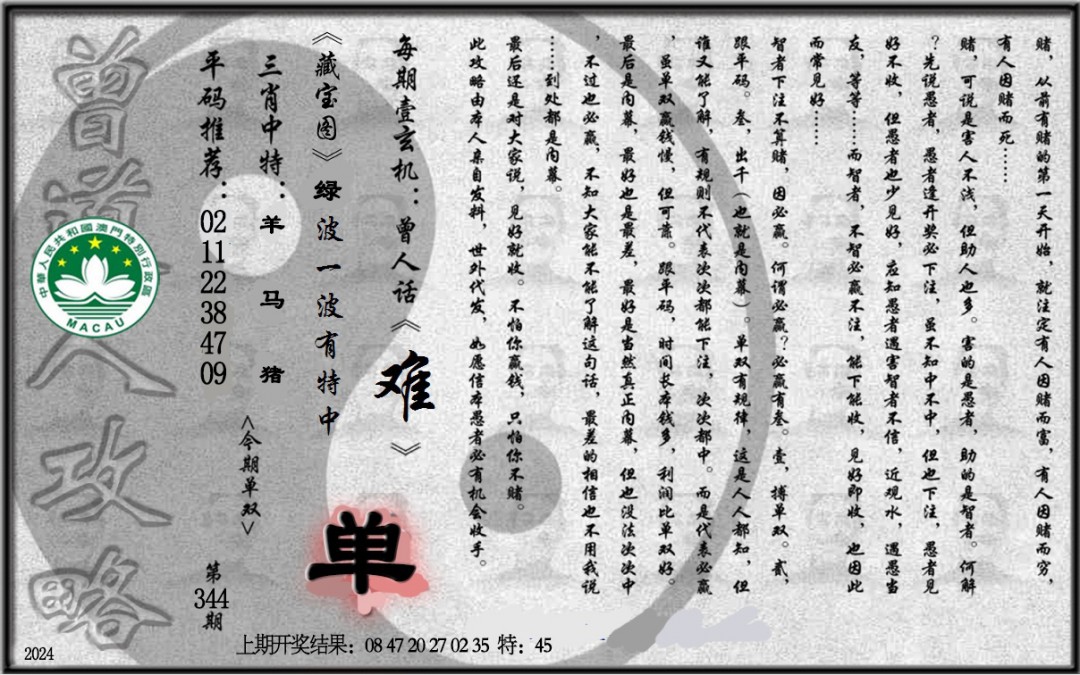 赌，从前有赌的第一天开始，就注定有人因赌而富，有人因赌而穷，
有人因赌而死……
赌，可说是害人不浅，但助人也多。害的是愚者，助的是智者。何解
？先说愚者，愚者逢开奖必下注，虽不知中不中，但也下注，愚者见
好不收，但愚者也少见好，应知愚者遇害智者不信，近观水，遇愚当
友，等等……而智者，不智必赢不注，能下能收，见好即收，也因此
而常见好……
智者下注不算赌，因必赢。何谓必赢？必赢有叁。壹，搏单双。贰，
跟平码。叁，出千（也就是内幕）。单双有规律，这是人人都知，但
谁又能了解，有规则不代表次次都能下注，次次都中。而是代表必赢
，虽单双赢钱慢，但可靠。跟平码，时间长本钱多，利润比单双好。
最后是内幕，最好也是最差，最好是当然真正内幕，但也没法次次中
，不过也必赢，不知大家能不能了解这句话，最差的相信也不用我说
……到处都是内幕。
最后还是对大家说，见好就收。不怕你赢钱，只怕你不赌。
此攻略由本人亲自发料，世外代发，如愿信本愚者必有机会收手。
每期壹玄机：曾人话《难》
《藏宝图》绿波一波有特中
单
三肖中特：羊 马 猪
<今期单双>
平码推荐：02 11 22 38 47 09
第344期
曾道人攻略
中華人民共和國澳門特別行政區
MACAU
2024
上期开奖结果：08 47 20 27 02 35 特：45